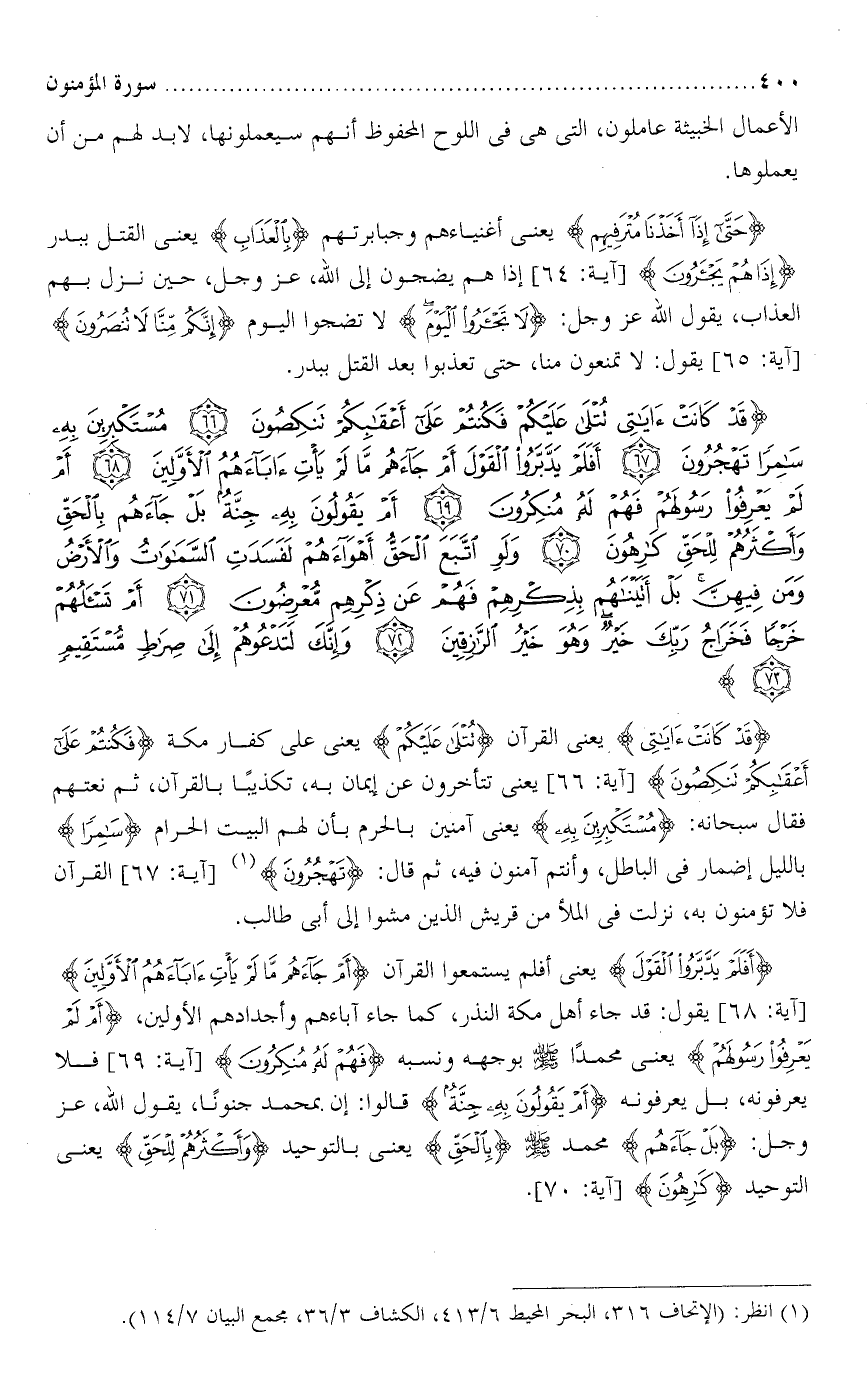 ٤٠٠ ........................................................................ سورة المؤمنون
الأعمال الخبيثة عاملون، التى هى فى اللوح المحفوظ أنهم سيعملونها، لابد لهم من أن
يعملوها.
﴿حَتَّىٰٓ إِذَآ أَخَذۡنَا مُتۡرَفِيهِم﴾ يعنى أغنياءهم وجبابرتهم ﴿بِٱلۡعَذَابِ﴾ يعنى القتل ببدر
﴿إِذَا هُمۡ يَجۡـَٔرُونَ﴾ [آية: ٦٤] إذا هم يضجون إلى الله، عز وجل، حين نزل بهم
العذاب، يقول الله عز وجل: ﴿لَا تَجۡـَٔرُواْ ٱلۡيَوۡمَۖ﴾ لا تضجوا اليوم ﴿إِنَّكُم مِّنَّا لَا تُنصَرُونَ﴾
[آية: ٦٥] يقول: لا تمنعون منا، حتى تعذبوا بعد القتل ببدر.
﴿قَدۡ كَانَتۡ ءَايَٰتِى تُتۡلَىٰ عَلَيۡكُمۡ فَكُنتُمۡ عَلَىٰٓ أَعۡقَٰبِكُمۡ تَنكِصُونَ ٦٦ مُسۡتَكۡبِرِينَ بِهِۦ
سَٰمِرٗا تَهۡجُرُونَ ٦٧ أَفَلَمۡ يَدَّبَّرُواْ ٱلۡقَوۡلَ أَمۡ جَآءَهُم مَّا لَمۡ يَأۡتِ ءَابَآءَهُمُ ٱلۡأَوَّلِينَ ٦٨ أَمۡ
لَمۡ يَعۡرِفُواْ رَسُولَهُمۡ فَهُمۡ لَهُۥ مُنكِرُونَ ٦٩ أَمۡ يَقُولُونَ بِهِۦ جِنَّةُۢۚ بَلۡ جَآءَهُم بِٱلۡحَقِّ
وَأَكۡثَرُهُمۡ لِلۡحَقِّ كَٰرِهُونَ ٧٠ وَلَوِ ٱتَّبَعَ ٱلۡحَقُّ أَهۡوَآءَهُمۡ لَفَسَدَتِ ٱلسَّمَٰوَٰتُ وَٱلۡأَرۡضُ
وَمَن فِيهِنَّۚ بَلۡ أَتَيۡنَٰهُم بِذِكۡرِهِمۡ فَهُمۡ عَن ذِكۡرِهِم مُّعۡرِضُونَ ٧١ أَمۡ تَسۡـَٔلُهُمۡ
خَرۡجٗا فَخَرَاجُ رَبِّكَ خَيۡرٞۖ وَهُوَ خَيۡرُ ٱلرَّٰزِقِينَ ٧٢ وَإِنَّكَ لَتَدۡعُوهُمۡ إِلَىٰ صِرَٰطٖ مُّسۡتَقِيمٖ
٧٣ ﴾
﴿قَدۡ كَانَتۡ ءَايَٰتِى﴾ يعنى القرآن ﴿تُتۡلَىٰ عَلَيۡكُمۡ﴾ يعنى على كفار مكة ﴿فَكُنتُمۡ عَلَىٰٓ
أَعۡقَٰبِكُمۡ تَنكِصُونَ﴾ [آية: ٦٦] يعنى تتأخرون عن إيمان به، تكذيبًا بالقرآن، ثم نعتهم
فقال سبحانه: ﴿مُسۡتَكۡبِرِينَ بِهِۦ﴾ يعنى آمنين بالحرم بأن لهم البيت الحرام ﴿سَٰمِرٗا﴾
بالليل إضمار فى الباطل، وأنتم آمنون فيه، ثم قال: ﴿تَهۡجُرُونَ﴾ (١) [آية: ٦٧] القرآن
فلا تؤمنون به، نزلت فى الملأ من قريش الذين مشوا إلى أبى طالب.
﴿أَفَلَمۡ يَدَّبَّرُواْ ٱلۡقَوۡلَ﴾ يعنى أفلم يستمعوا القرآن ﴿أَمۡ جَآءَهُم مَّا لَمۡ يَأۡتِ ءَابَآءَهُمُ ٱلۡأَوَّلِينَ﴾
[آية: ٦٨] يقول: قد جاء أهل مكة النذر، كما جاء آباءهم وأجدادهم الأولين، ﴿أَمۡ لَمۡ
يَعۡرِفُواْ رَسُولَهُمۡ﴾ يعنى محمدًا ﷺ بوجهه ونسبه ﴿فَهُمۡ لَهُۥ مُنكِرُونَ﴾ [آية: ٦٩] فلا
يعرفونه، بل يعرفونه ﴿أَمۡ يَقُولُونَ بِهِۦ جِنَّةُۢۚ﴾ قالوا: إن بمحمد جنونًا، يقول الله، عز
وجل: ﴿بَلۡ جَآءَهُم﴾ محمد ﷺ ﴿بِٱلۡحَقِّ﴾ يعنى بالتوحيد ﴿وَأَكۡثَرُهُمۡ لِلۡحَقِّ﴾ يعنى
التوحيد ﴿كَٰرِهُونَ﴾ [آية: ٧٠].
(١) انظر: (الإتحاف ٣١٦، البحر المحيط ٤١٣/٦، الكشاف ٣٦/٣، مجمع البيان ١١٤/٧).